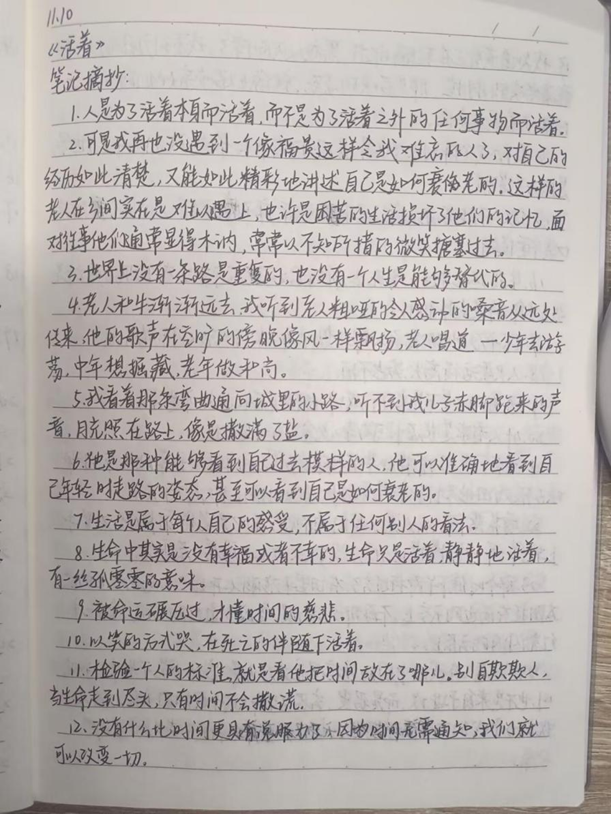 11.10
《活着》
笔记摘抄:
1.人是为了活着本身而活着,而不是为了活着之外的任何事物而活着。
2.可是我再也没遇到一个像福贵这样令我难忘的人了,对自己的
经历如此清楚,又能如此精彩地讲述自己是如何衰老的。这样的
老人在乡间实在是难以遇上,也许是困苦的生活损坏了他们的记忆,面
对往事他们通常显得木讷,常常以不知所措的微笑搪塞过去。
3.世界上没有一条路是重复的,也没有一个人生是能够替代的。
4.老人和牛渐渐远去,我听到老人粗哑的令人感动的嗓音从远处
传来,他的歌声在空旷的傍晚像风一样飘扬,老人唱道 一少年去游
荡,中年想掘藏,老年做和尚。
5.我看着那条弯曲通向城里的小路,听不到我儿子赤脚跑来的声
音,月光照在路上,像是撒满了盐。
6.他是那种能够看到自己过去模样的人,他可以准确地看到自
己年轻时走路的姿态,甚至可以看到自己是如何衰老的。
7.生活是属于每个人自己的感受,不属于任何别人的看法。
8.生命中其实是没有幸福或者不幸的,生命只是活着,静静地活着,
有一丝孤零零的意味。
9.被命运碾压过,才懂时间的慈悲。
10.以笑的方式哭,在死亡的伴随下活着。
11.检验一个人的标准,就是看他把时间放在了哪儿,别自欺欺人,
当生命走到尽头,只有时间不会撒谎。
12.没有什么比时间更具有说服力了,因为时间无需通知,我们就
可以改变一切。